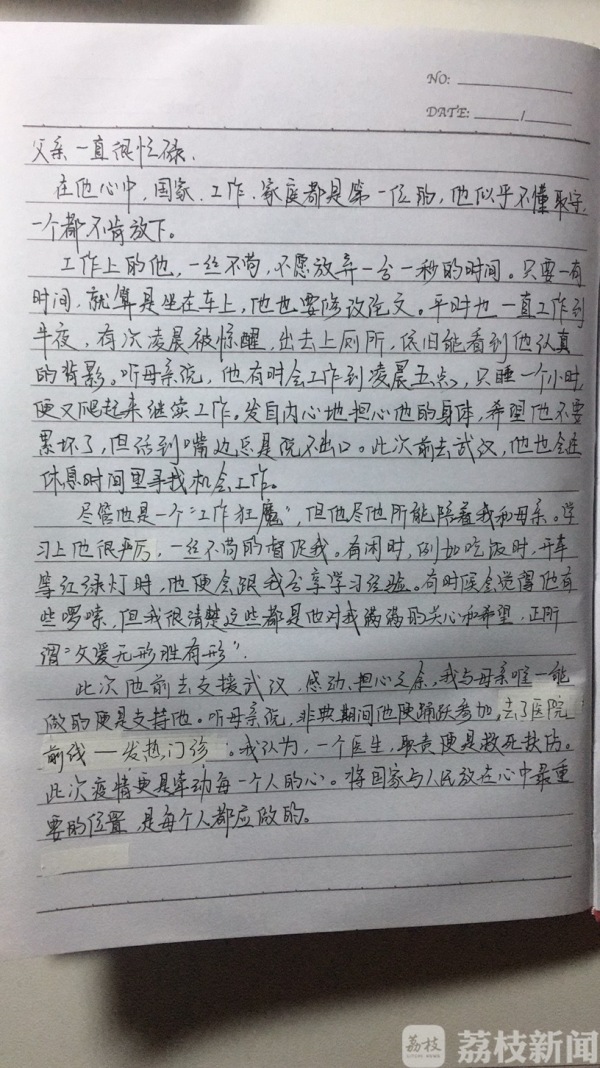 NO:
DATE: /
父亲一直很忙碌.
在他心中,国家、工作、家庭都是第一位的,他似乎不懂取舍,
一个都不肯放下。
工作上的他,一丝不苟,不愿放弃一分一秒的时间。只要一有
时间,就算是坐在车上,他也要修改论文。平时也一直工作到
半夜,有次凌晨被惊醒,出去上厕所,依旧能看到他认真
的背影。听母亲说,他有时会工作到凌晨五点,只睡一个小时,
便又爬起来继续工作。发自内心地担心他的身体,希望他不要
累坏了,但话到嘴边总是说不出口。此次前去武汉,他也会在
休息时间里寻找机会工作。
尽管他是一个“工作狂魔”,但他尽他所能陪着我和母亲。学
习上他很严厉,一丝不苟的督促我。有闲时,例如吃饭时,开车
等红绿灯时,他便会跟我分享学习经验。有时候会觉得他有
些啰嗦,但我很清楚这些都是他对我满满的关心和希望,正所
谓“父爱无形胜有形”.
此次他前去支援武汉,感动、担心之余,我与母亲唯一能
做的便是支持他。听母亲说,非典期间他便踊跃参加,去了医院
前线——发热门诊。我认为,一个医生,职责便是救死扶伤。
此次疫情更是牵动每一个人的心。将国家与人民放在心中最重
要的位置,是每个人都应做的。
荔枝
LITCHI NEWS
荔枝新闻